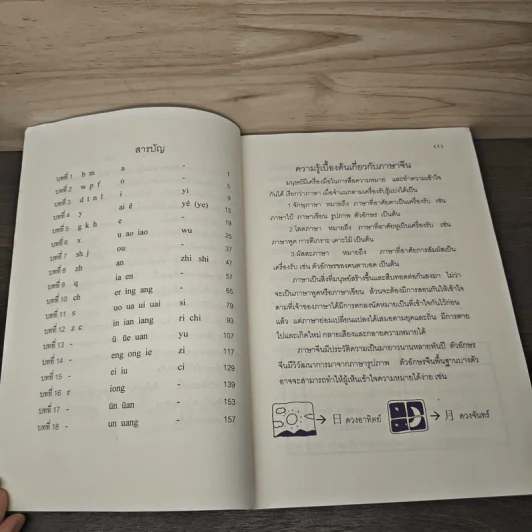 สารบัญ
บทที่ 1 b m a - 1
บทที่ 2 w p f o - 5
บทที่ 3 d t n l i yi 9
บทที่ 4 y ai ê yê (ye) 13
บทที่ 5 g k h e - 19
บทที่ 6 x u ao iao wu 25
บทที่ 7 sh j ou - 37
บทที่ 8 zh an zhi shi 47
บทที่ 9 q ia en - 57
บทที่ 10 ch er ing ang - 65
บทที่ 11 s uo ua ui uai si 79
บทที่ 12 z c in ian iang ri chi 93
บทที่ 13 - ü üe uan yu 107
บทที่ 14 - eng ong ie zi 117
บทที่ 15 - ei iu ci 129
บทที่ 16 r iong - 139
บทที่ 17 - ün üan - 153
บทที่ 18 - un uang - 157
ความรู้เบื้องต้นเกี่ยวกับภาษาจีน
มนุษย์มีเครื่องมือในการสื่อความหมาย และทำความเข้าใจ
กันได้ เรียกว่าภาษา เมื่อจำแนกตามเครื่องรับรู้แบ่งได้เป็น
1.จักษุภาษา หมายถึง ภาษาที่อาศัยตาเป็นเครื่องรับ เช่น
ภาษาใบ้ ภาษาเขียน รูปภาพ ตัวอักษร เป็นต้น
2.โสตภาษา หมายถึง ภาษาที่อาศัยหูเป็นเครื่องรับ เช่น
ภาษาพูด การตีเกราะ เคาะไม้ เป็นต้น
3.ผัสสะภาษา หมายถึง ภาษาที่อาศัยการสัมผัสเป็น
เครื่องรับ เช่น ตัวอักษรของคนตาบอด เป็นต้น
ภาษาเป็นสิ่งที่มนุษย์สร้างขึ้นและสืบทอดต่อกันลงมา ไม่ว่า
จะเป็นภาษาพูดหรือภาษาเขียน ล้วนจะต้องมีการสอนกันให้เข้าใจ
ตามที่เจ้าของภาษาได้มีการตกลงนัดหมายเป็นที่เข้าใจกันไว้ก่อน
แล้ว แต่ภาษาย่อมเปลี่ยนแปลงได้เสมอตามยุคและถิ่น มีการตาย
ไปและเกิดใหม่ กลายเสียงและกลายความหมายได้
ภาษาจีนมีประวัติความเป็นมายาวนานหลายพันปี ตัวอักษร
จีนมีวิวัฒนาการมาจากภาษารูปภาพ ตัวอักษรจีนพื้นฐานบางตัว
อาจจะสามารถทำให้ผู้เห็นเข้าใจความหมายได้ง่าย เช่น
→ 日 ดวงอาทิตย์ → 月 ดวงจันทร์